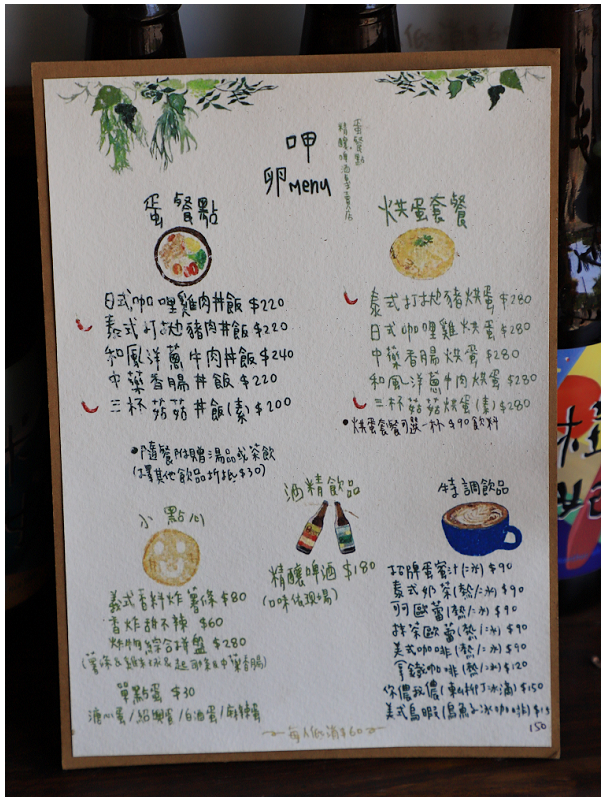 呷
卵Menu
蛋餐點
精釀啤酒專賣店
蛋餐點
日式咖哩雞肉丼飯 $220
泰式打拋豬肉丼飯 $220
和風洋蔥牛肉丼飯 $240
中藥香腸丼飯 $220
三杯菇菇丼飯(素) $200
•隨餐附贈湯品或茶飲
(擇其他飲品折抵$30)
烘蛋套餐
泰式打拋豬烘蛋 $280
日式咖哩雞烘蛋 $280
中藥香腸烘蛋 $280
和風洋蔥牛肉烘蛋 $280
三杯菇菇烘蛋(素) $280
•烘蛋套餐可選一杯$90飲料
小點心
義式香料炸薯條 $80
香炸甜不辣 $60
炸物綜合拼盤 $280
單點蛋 $30
溏心蛋/紹興蛋/白酒蛋/麻辣蛋
酒精飲品
精釀啤酒 $180
(口味依現場)
特調飲品
招牌蛋蜜汁(冰) $90
泰式奶茶(熱/冰) $90
可可歐蕾(熱/冰) $90
抹茶歐蕾(熱/冰) $90
美式咖啡(熱/冰) $90
拿鐵咖啡(熱/冰) $120
你儂我儂(東山柳丁冰滴) $150
150
每人低消$60